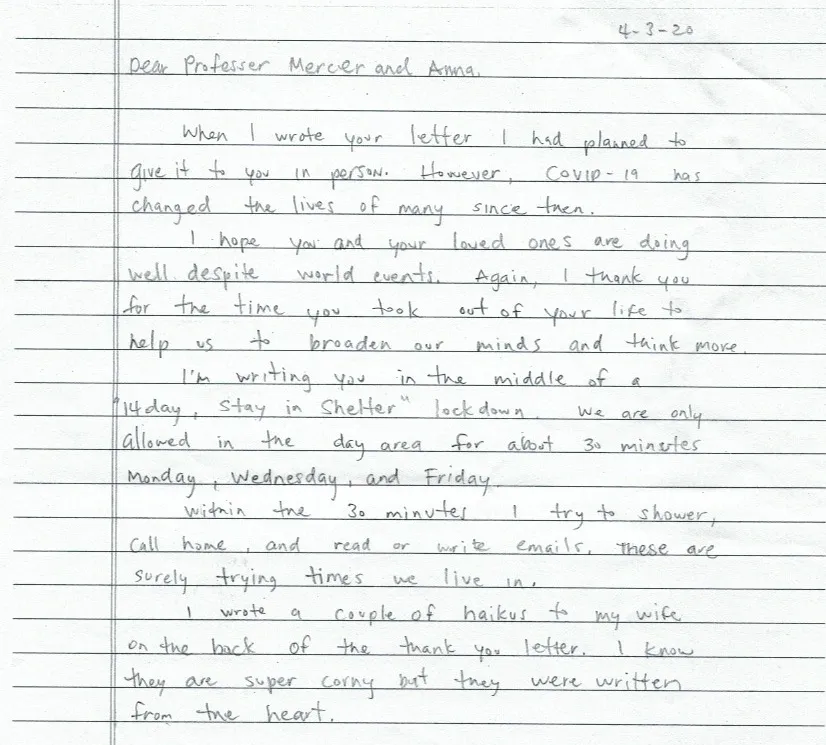 4-3-20
Dear Professer Mercier and Anna,
When I wrote your letter I had planned to
give it to you in person. However, COVID-19 has
changed the lives of many since then.
I hope you and your loved ones are doing
well despite world events. Again, I thank you
for the time you took out of your life to
help us to broaden our minds and think more.
I'm writing you in the middle of a
"14 day, Stay in Shelter" lockdown. We are only
allowed in the day area for about 30 minutes
Monday, Wednesday, and Friday.
Within the 30 minutes I try to shower,
call home, and read or write emails. These are
surely trying times we live in.
I wrote a couple of haikus to my wife
on the back of the thank you letter. I know
they are super corny but they were written
from the heart.